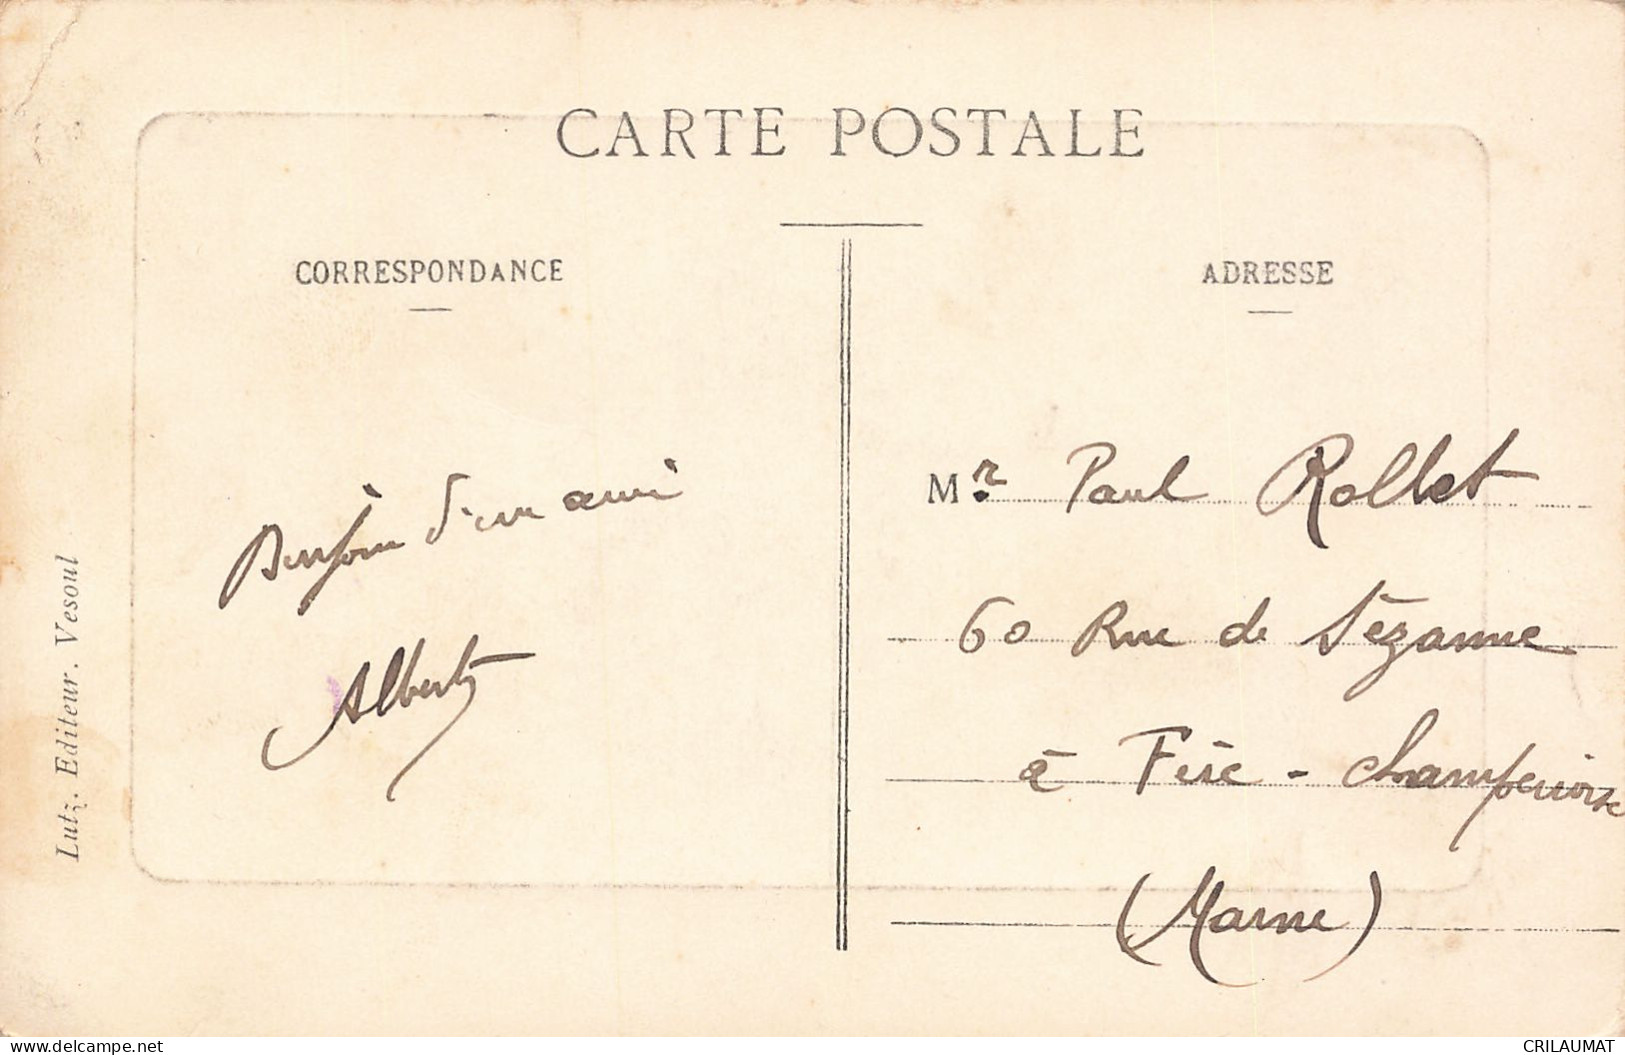 CARTE POSTALE
CORRESPONDANCE
ADRESSE
Bonjour d'un ami
Albert
Mr. Paul Rollet
60 Rue de Sézanne
à Fère-champenoise
(Marne)
Lutz. Editeur. Vesoul
www.delcampe.net
CRILAUMAT